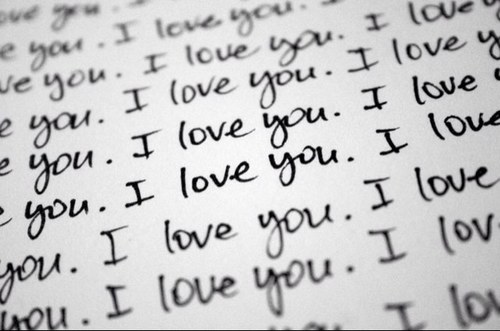 ove you. I
e you. I love you. I
ve you. I love you. I love
e you. I love you. I love y
e you. I love you. I love
e you. I love you. I love
you. I love you. I love
you. I love you. I lov
you. I lo